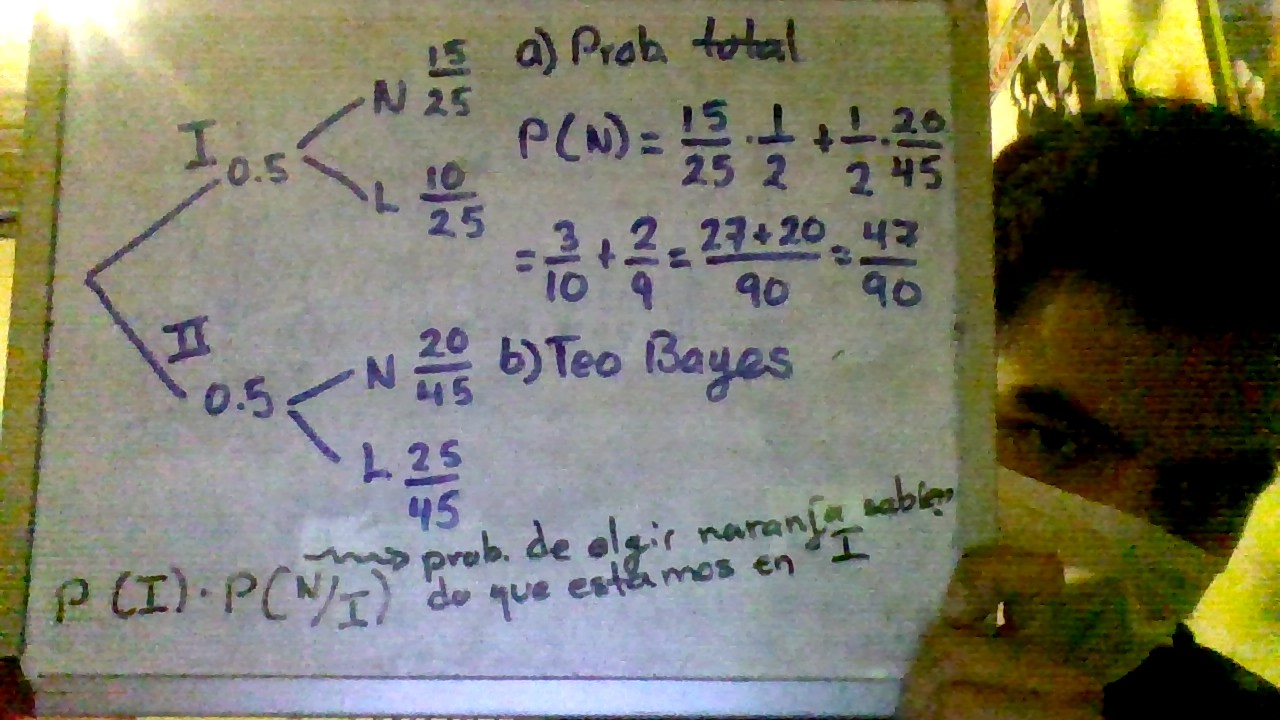 I 0.5
N 15/25
L 10/25
II 0.5
N 20/45
L 25/45
a) Prob. total
P(N) = 15/25 · 1/2 + 1/2 · 20/45
= 3/10 + 2/9 = 27+20/90 = 47/90
b) Teo Bayes
P(I)·P(N/I)
prob. de elgir naranja sabien
do que estamos en I